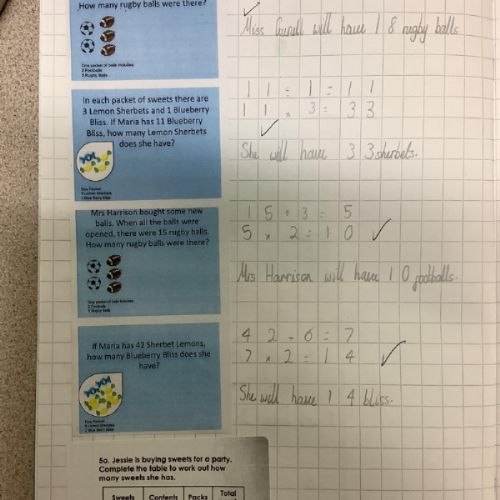 How many rugby balls were there?
One packet of balls includes:
2 Footballs
3 Rugby Balls
Miss Gurell will have 18 rugby balls
In each packet of sweets there are
3 Lemon Sherbets and 1 Blueberry
Bliss. If Maria has 11 Blueberry
Bliss, how many Lemon Sherbets
does she have?
One Packet
11 ÷ 1 = 11
11 × 3 = 33
She will have 33 sherbets.
Mrs Harrison bought some new
balls. When all the balls were
opened, there were 15 rugby balls.
How many rugby balls were there?
One packet of balls includes
2 Footballs
3 Rugby Balls
15 ÷ 3 = 5
5 × 2 = 10
Mrs Harrison will have 10 footballs.
If Maria has 42 Sherbet Lemons,
how many Blueberry Bliss does she
have?
One Packet
6 Lemon Sherbets
2 Blue Berry Bliss
42 ÷ 6 = 7
7 × 2 = 14
She will have 14 bliss.
5a. Jessie is buying sweets for a party.
Complete the table to work out how
many sweets she has.
Sweets Contents Packs Total